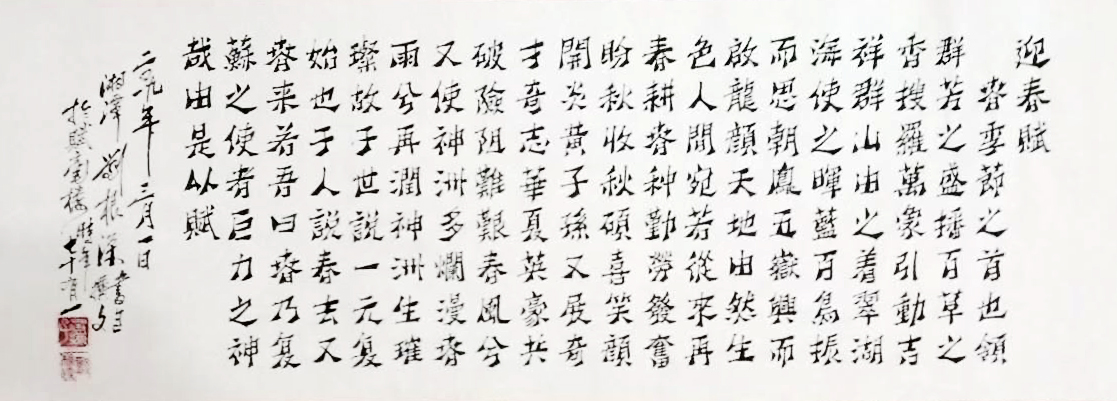 迎春賦
春季節之首也領
群芳之盛播百草之
香搜羅萬象引動吉
祥群山由之着翠湖
海使之暉藍百鳥振
而思朝鳳五嶽興而
啟龍顏天地由然生
色人間宛若從來再
春耕春种勤勞發奮
盼秋收秋碩喜笑顏
開炎黃子孫又展奇
才奇志華夏英豪共
破險阻難艱春風兮
又使神洲多爛漫春
雨兮再潤神洲生璀
璨故于世説一元复
始也于人説春去又
春来若吾曰春乃复
蘇之使者巨力之神
哉由是以賦
二〇一九年三月一日
湘潭劉根深書
於賦樓時年七十有一